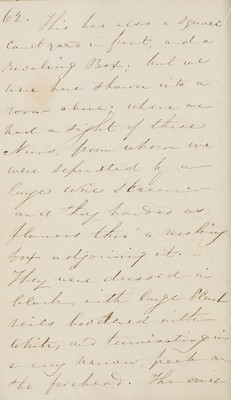 62. This has also a square
court yard in front, and a
revolving Box; but we
were here shown into a
room above; where we
had a sight of these
Nuns, from whom we
were separated by a
large wire screen -
and they handed us
flowers thro' a revolving
box adjoining it. -
They were dressed in
black with large black
veils bordered with
white, and terminating in
a very narrow peak on
the forehead. The